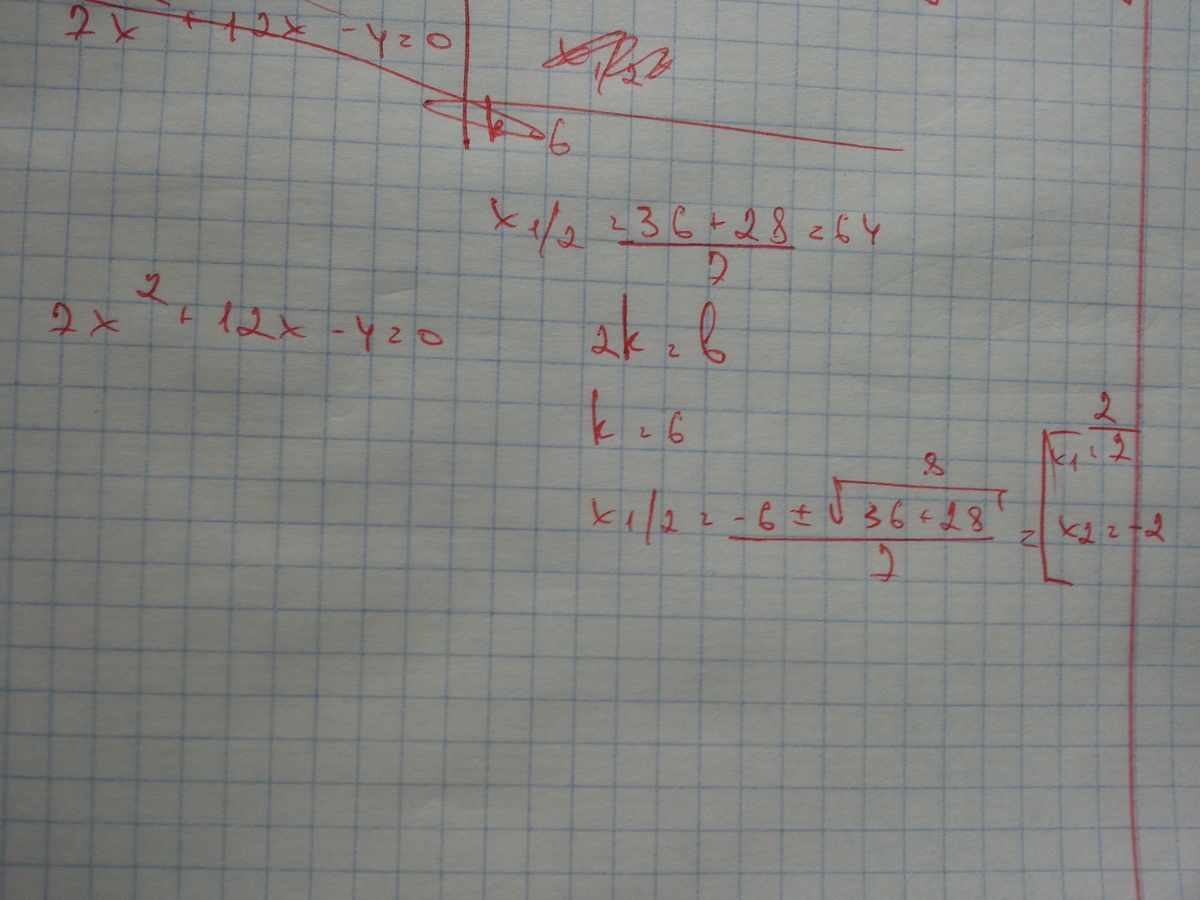 7x + 12x - 4 = 0
x1/2
k 6
x1/2 = 36 + 28 / 7 = 64
7x² + 12x - 4 = 0
2k = b
k = 6
x1/2 = -6 ± √36 + 28 / 7 = [ x1 = 2/7
8
x2 = -2